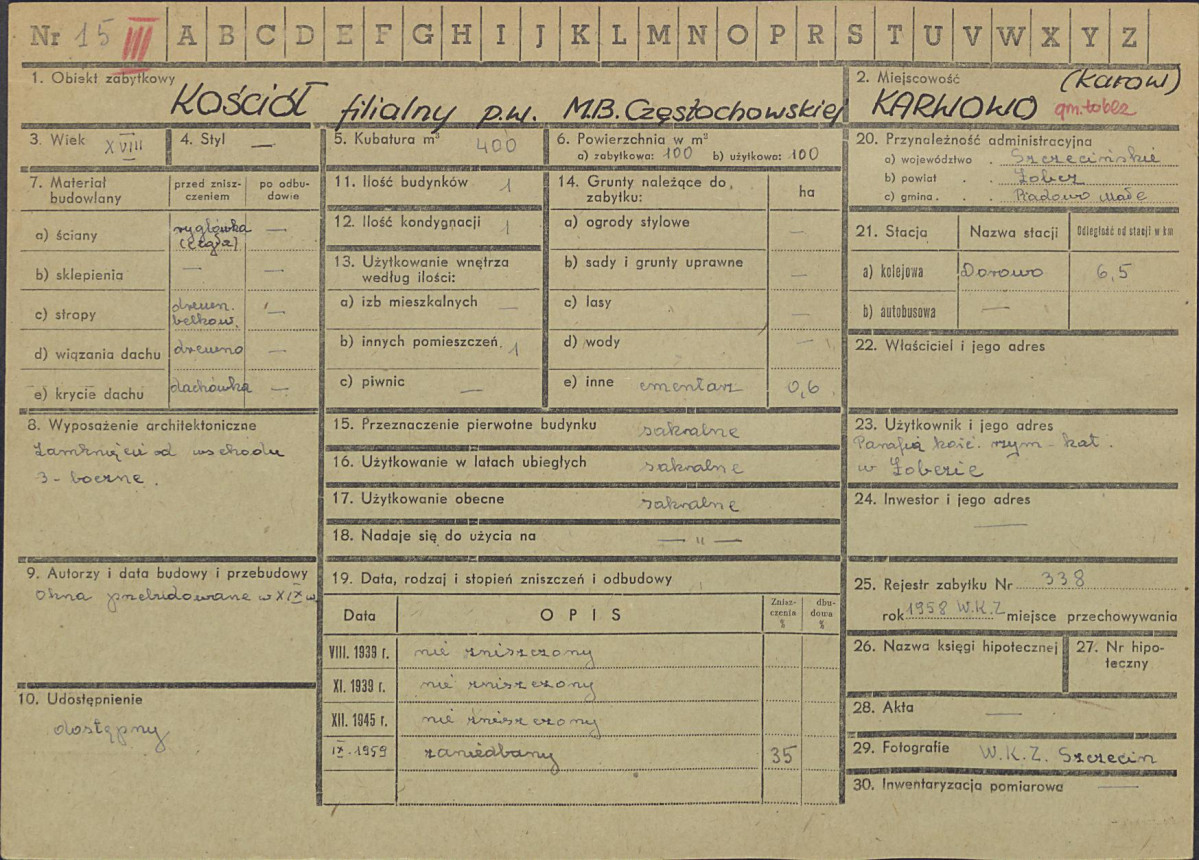 Nr 15 III A B C D E F G H I J K L M N O P R S T U V W X Y Z
1. Obiekt zabytkowy
Kościół filialny p.w. M.B. Częstochowskiej
2. Miejscowość
(Karow)
KARWOWO gm. Łobez
3. Wiek XVIII
4. Styl —
5. Kubatura m³ 400
6. Powierzchnia w m²
a) zabytkowa: 100 b) użytkowa: 100
7. Materiał budowlany
przed zniszczeniem
po odbudowie
a) ściany
ryglówka
(cegła)
—
b) sklepienia — —
c) stropy
drewn.
belkow.
—
d) wiązania dachu drewno —
e) krycie dachu dachówka —
8. Wyposażenie architektoniczne
Zamknięcie od wschodu
3-boczne.
9. Autorzy i data budowy i przebudowy
Okna przebudowane w XIX w
10. Udostępnienie
dostępny
11. Ilość budynków 1
12. Ilość kondygnacji 1
13. Użytkowanie wnętrza
według ilości:
a) izb mieszkalnych —
b) innych pomieszczeń 1
c) piwnic —
14. Grunty należące do
zabytku:
ha
a) ogrody stylowe —
b) sady i grunty uprawne —
c) lasy —
d) wody —
e) inne cmentarz 0,6
15. Przeznaczenie pierwotne budynku sakralne
16. Użytkowanie w latach ubiegłych sakralne
17. Użytkowanie obecne sakralne
18. Nadaje się do użycia na — " —
19. Data, rodzaj i stopień zniszczeń i odbudowy
Data
O P I S
Zniszczenia %
dbudowa %
VIII. 1939 r. nie zniszczony
XI. 1939 r. nie zniszczony
XII. 1945 r. nie zniszczony
IX. 1959 zaniedbany 35
20. Przynależność administracyjna
a) województwo . Szczecińskie
b) powiat . . Łobez
c) gmina . . . Radowo Małe
21. Stacja
Nazwa stacji
Odległość od stacji w km
a) kolejowa Dorowo 6,5
b) autobusowa —
22. Właściciel i jego adres
23. Użytkownik i jego adres
Parafia kość. rzym-kat.
w Łobezie
24. Inwestor i jego adres
—
25. Rejestr zabytku Nr 338
rok 1958 W.K.Z miejsce przechowywania
26. Nazwa księgi hipotecznej
27. Nr hipoteczny
28. Akta —
29. Fotografie W.K.Z. Szczecin
30. Inwentaryzacja pomiarowa —